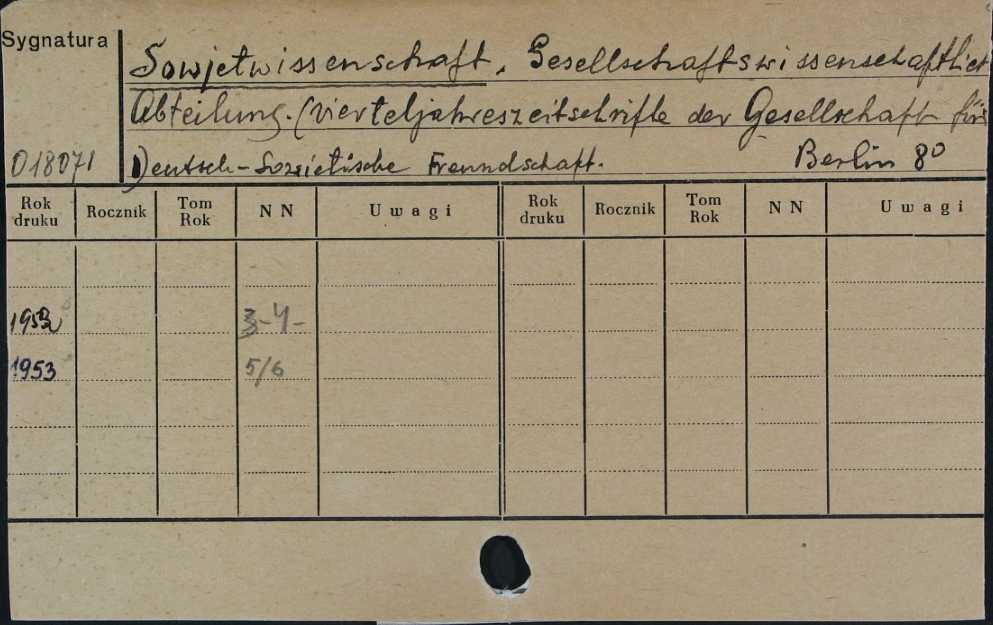 Sygnatura
Sowjetwissenschaft. Gesellschaftswissenschaftliche
Abteilung. (Vierteljahreszeitschrifte der Gesellschaft für
018071 Deutsch-Sowjetische Freundschaft. Berlin 8°
Rok druku Rocznik Tom Rok NN Uwagi Rok druku Rocznik Tom Rok NN Uwagi
1952 3-4-
1953 5/6